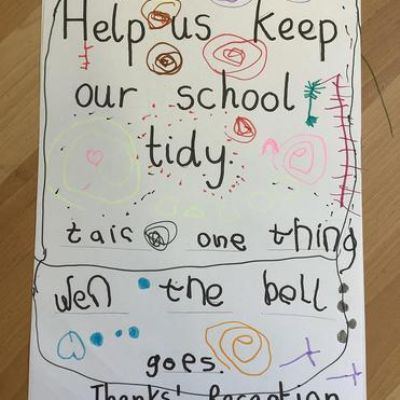 Help us keep
our school
tidy.
taic one thing
wen the bell
goes.
Thanks! Reception